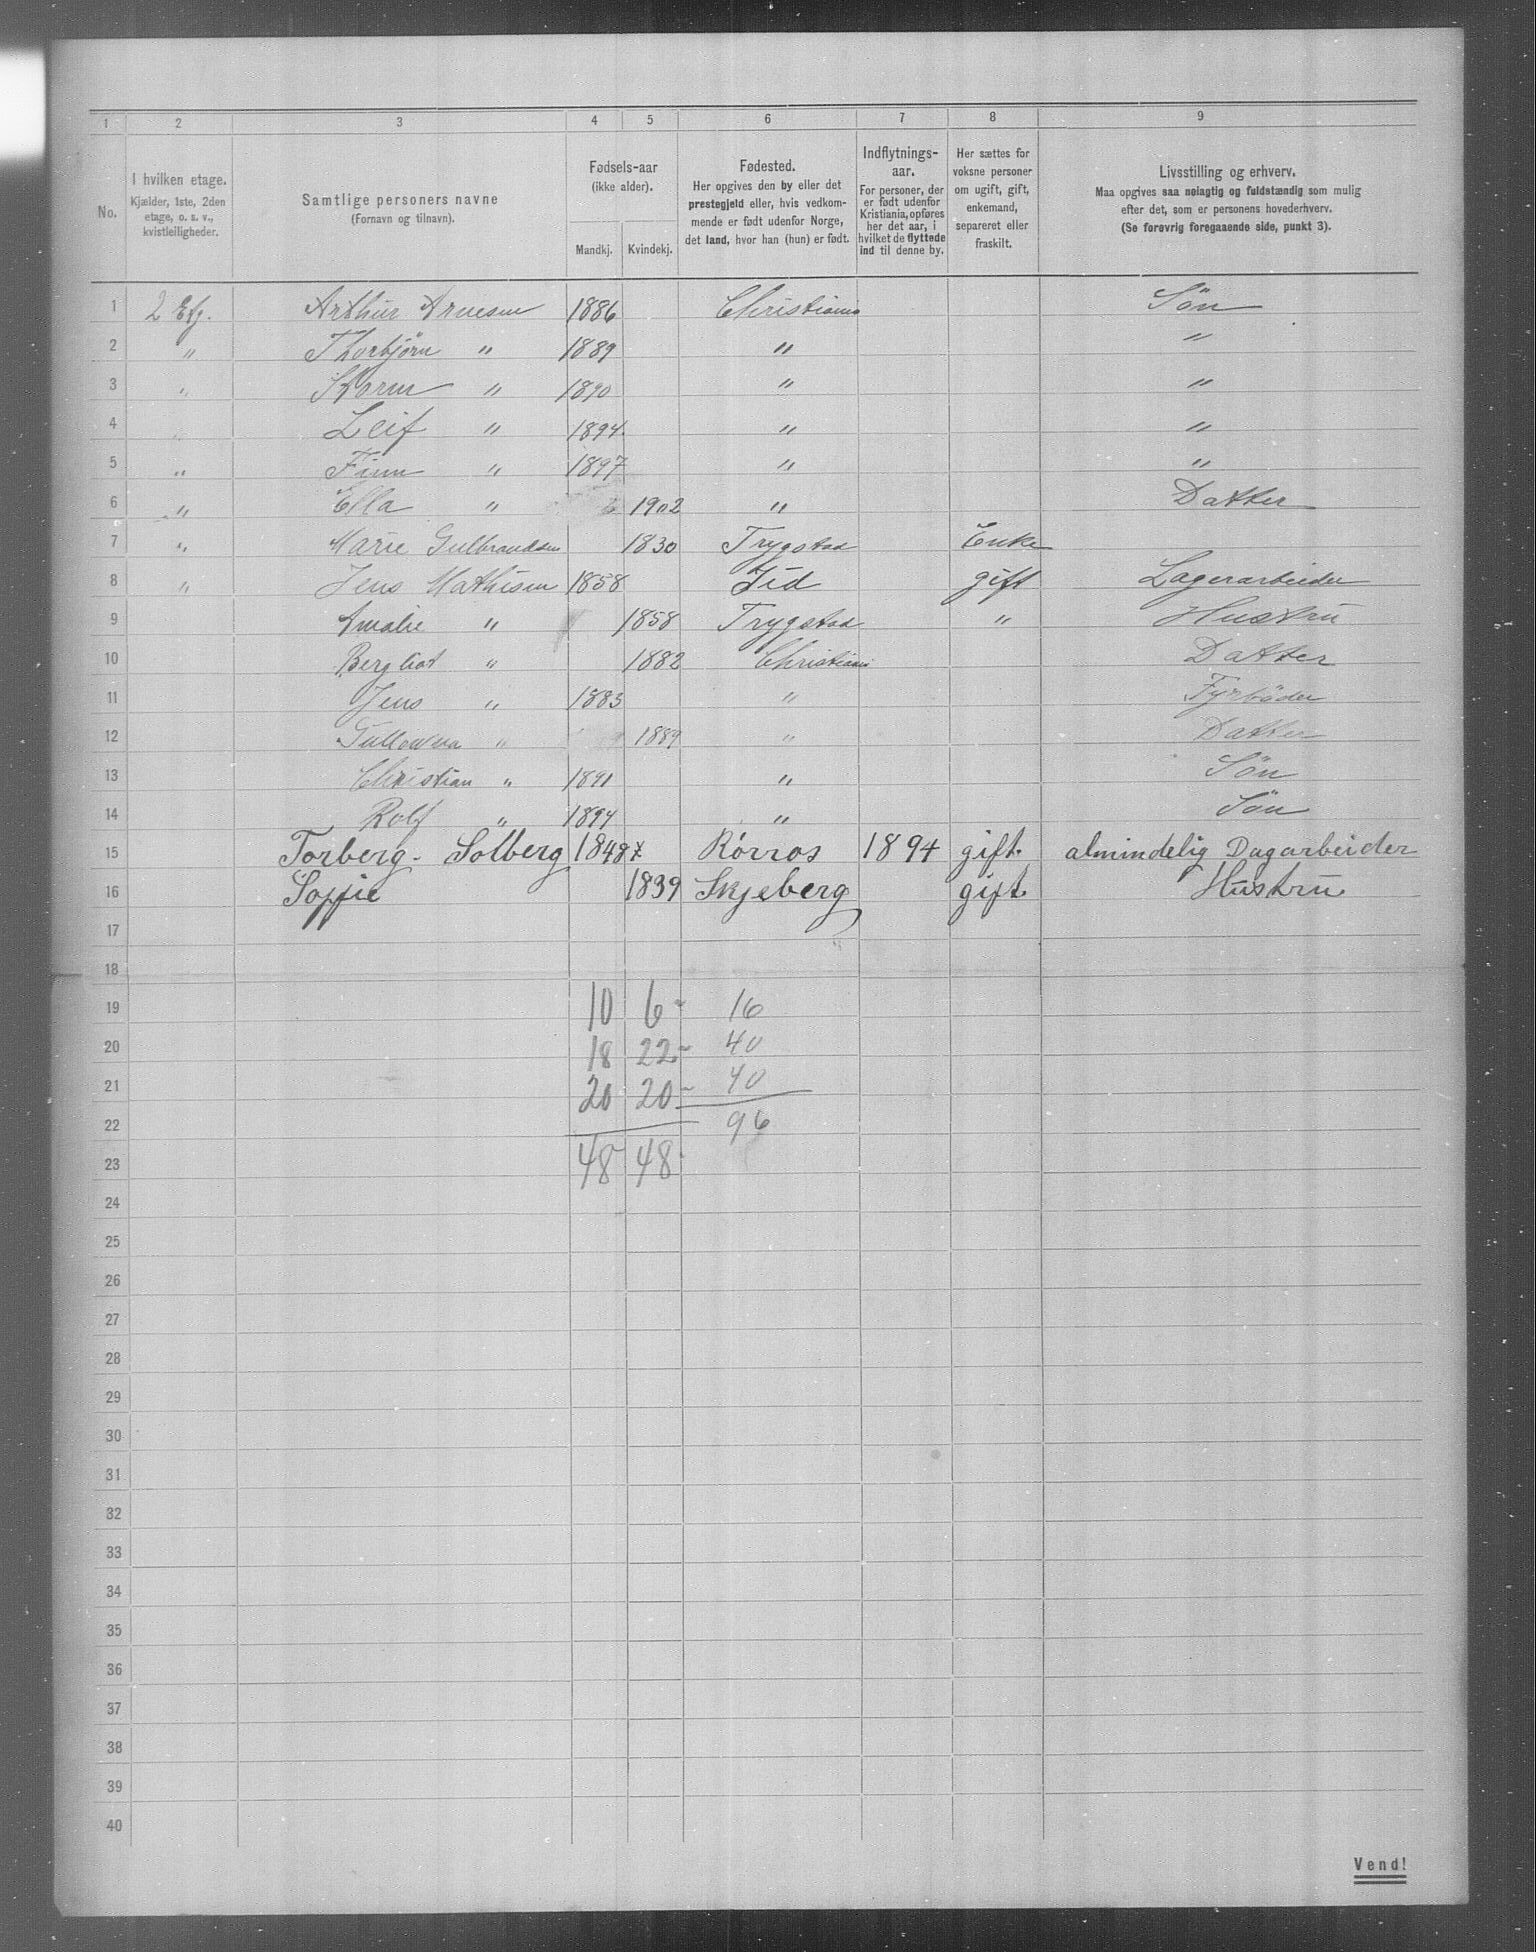 1 2 3 4 5 6 7 8 9
No.
I hvilken etage.
Kjælder, 1ste, 2den
etage, o. s. v.,
kvistleiligheder.
Samtlige personers navne
(Fornavn og tilnavn).
Fødsels-aar
(ikke alder).
Mandkj. Kvindekj.
Fødested.
Her opgives den by eller det
prestegjeld eller, hvis vedkom-
mende er født udenfor Norge,
det land, hvor han (hun) er født.
Indflytnings-
aar.
For personer, der
er født udenfor
Kristiania, opføres
her det aar, i
hvilket de flyttede
ind til denne by.
Her sættes for
voksne personer
om ugift, gift,
enkemand,
separeret eller
fraskilt.
Livsstilling og erhverv.
Maa opgives saa nøiagtig og fuldstændig som mulig
efter det, som er personens hovederhverv.
(Se forøvrig foregaaende side, punkt 3).
1 2 Etg. Arthur Arnesen 1886 Christiania Søn
2 " Thorbjørn " 1889 " "
3 " " 1890 " "
4 " Leif " 1894 " "
5 " Finn " 1897 " "
6 " Ella " 1902 " Datter
7 " Marie Gulbrandsen 1830 Trygstad Enke
8 " Jens Mathisen 1858 Id gift Lagerarbeider
9 Amalie " 1858 Trygstad " Hustru
10 Bergliot " 1882 Christiania Datter
11 Jens " 1883 " Fyrbøder
12 " 1889 " Datter
13 Christian " 1891 " Søn
14 Rolf " 1894 " Søn
15 Torberg Solberg 1848 x Rørros 1894 gift. almindelig Dagarbeider
16 Soffie 1839 Skjeberg gift Hustru
17
18
19 10 6 16
20 18 22 40
21 20 20 40
22 96
23 48 48
24
25
26
27
28
29
30
31
32
33
34
35
36
37
38
39
40
Vend!